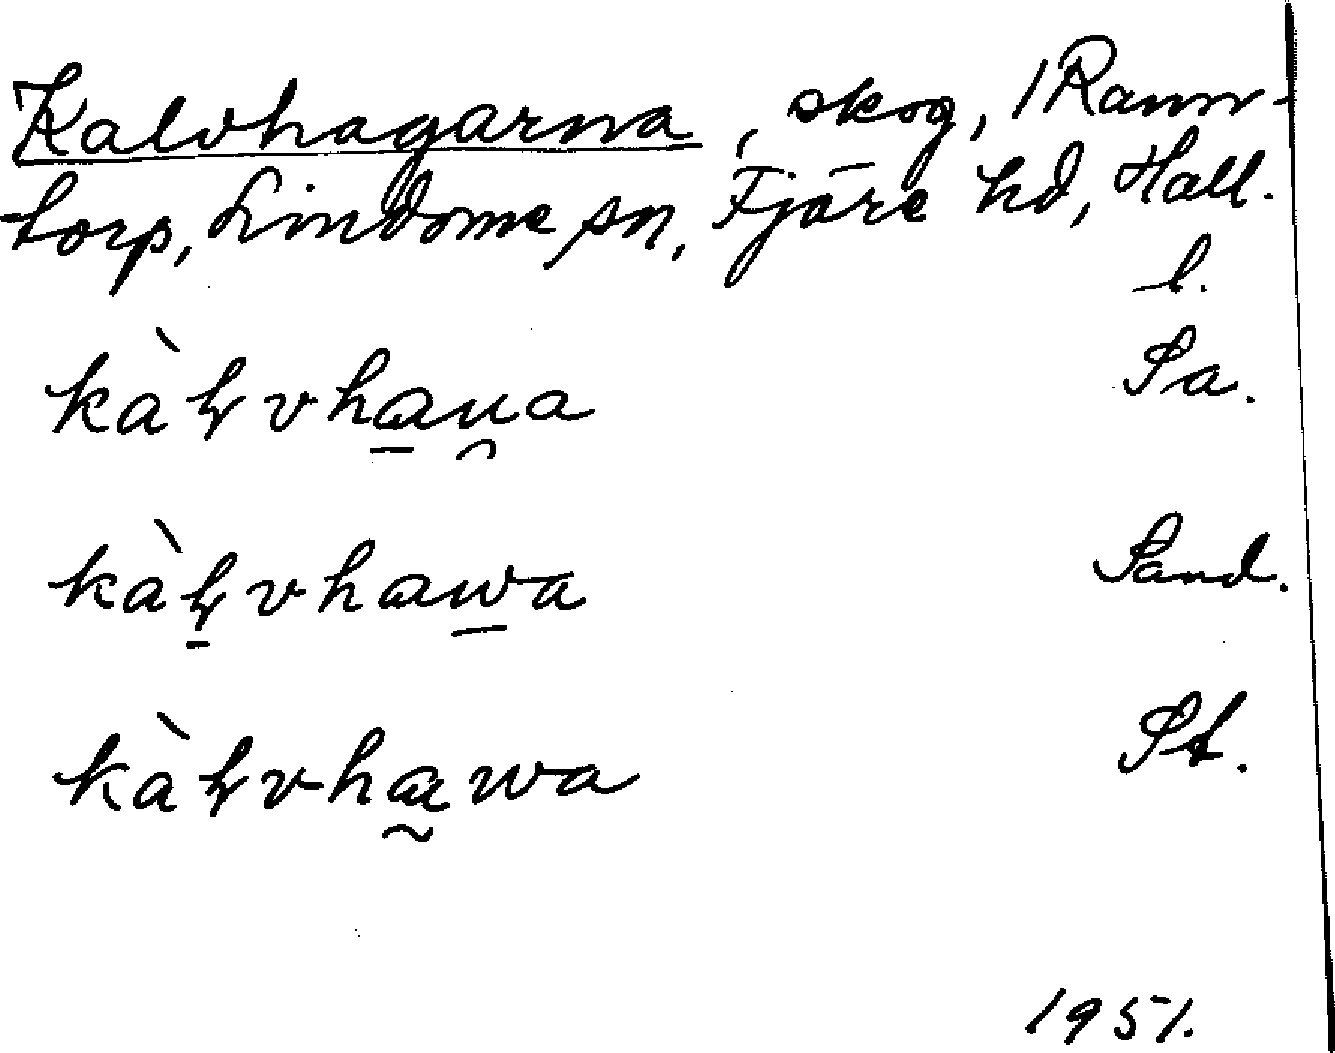 Kalvhagarna, skog, 1 Rann-
torp, Lindome sn, Fjäre hd, Hall.
l.
kàɫvha̠u̯a Sa.
kàɫ̠vhaw̠a Sand.
kàɫvha̰wa St.
1951.